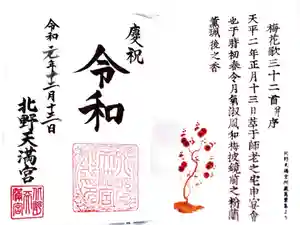 梅花歌三十二首并序
天平二年正月十三日萃于師老之宅申宴會
也于時初春令月氣淑風和梅披鏡前之粉蘭
薫珮後之香
慶祝
令和
令和元年十二月十三日
北野天満宮